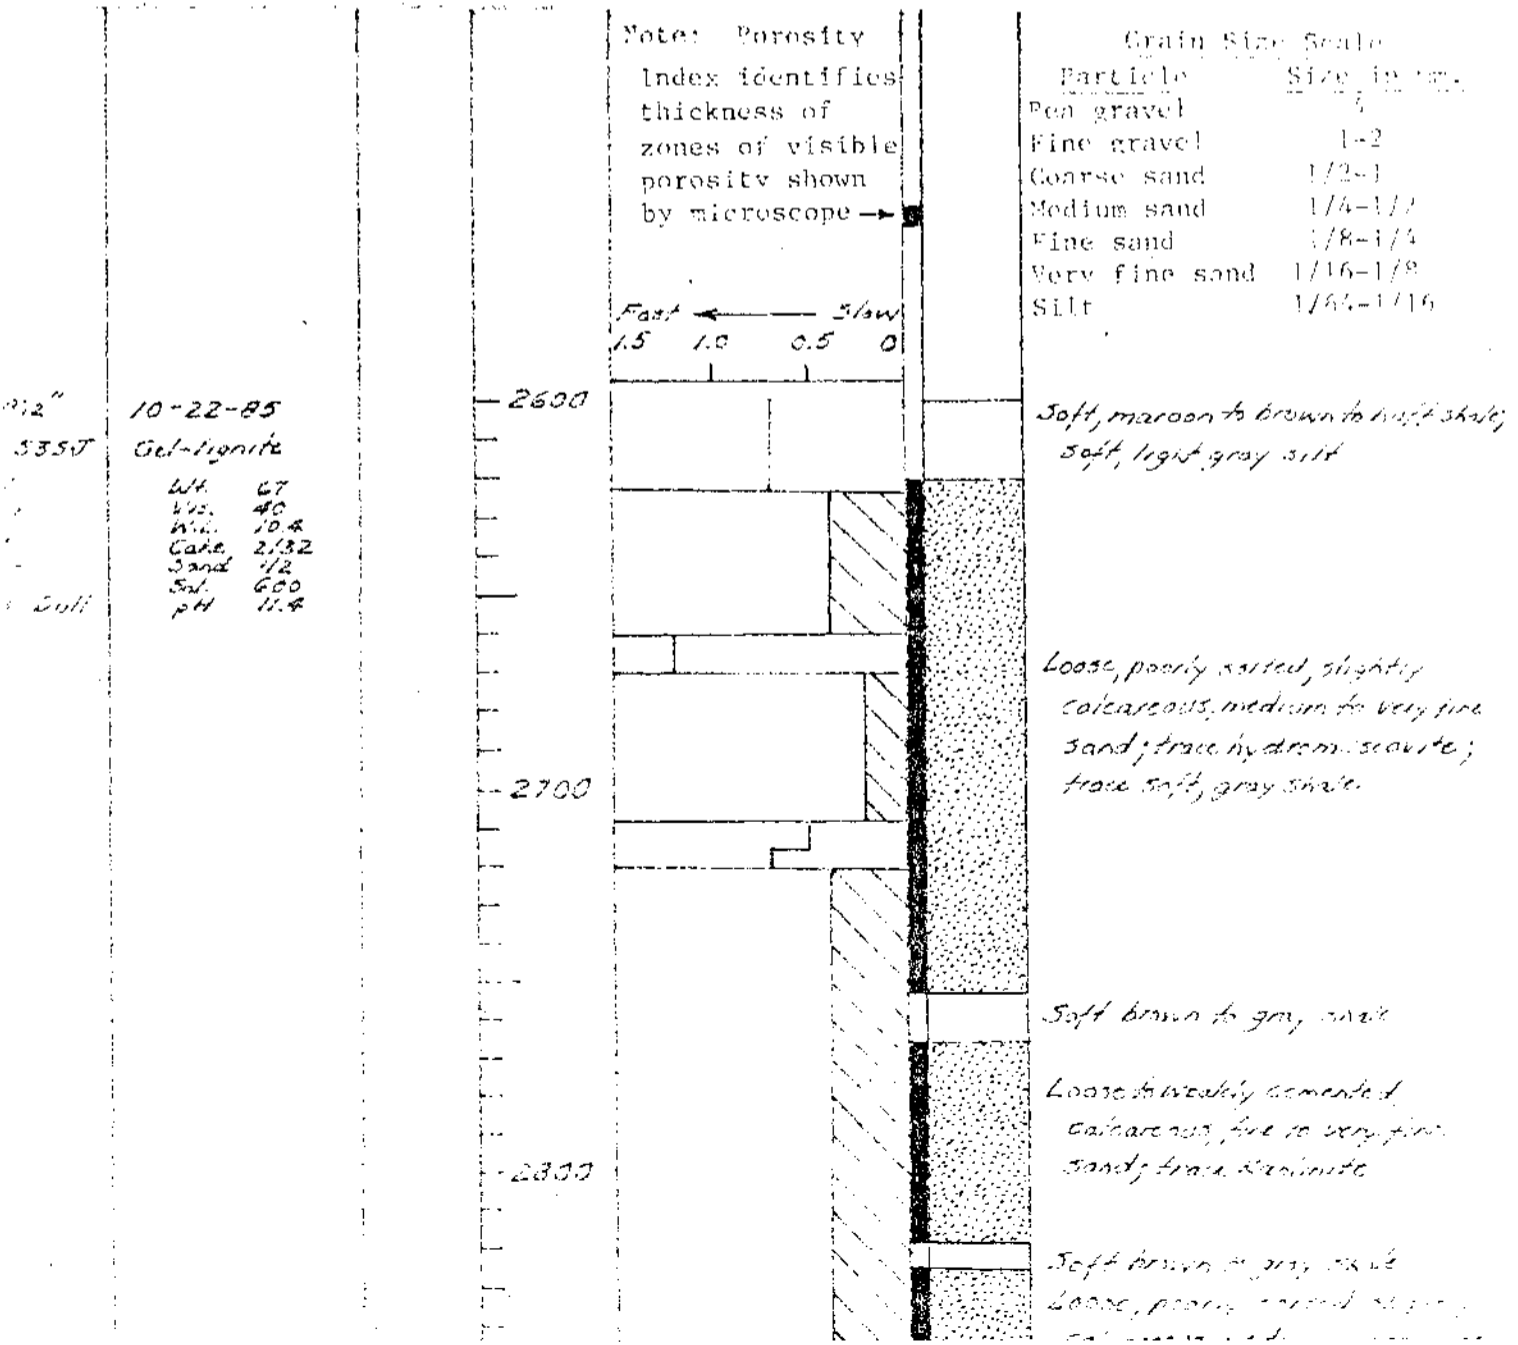 Note: Porosity
Index identifies
thickness of
zones of visible
porosity shown
by microscope
Grain Size Scale
Particle Size in mm.
Pea gravel 4
Fine gravel 1-2
Coarse sand 1/2-1
Medium sand 1/4-1/2
Fine sand 1/8-1/4
Very fine sand 1/16-1/8
Silt 1/64-1/16
Fast Slow
1.5 1.0 0.5 0
10-22-85
Gel-lignite
Wt. 67
Vis. 40
W.L. 10.4
Cake 2/32
Sand 1/2
Sal. 600
pH 11.4
Dull
2600
2700
2800
Soft, maroon to brown to buff shale;
soft, light gray silt
Loose, poorly sorted, slightly
calcareous, medium to very fine
sand; trace hydromuscovite;
trace soft, gray shale.
Soft brown to gray shale
Loose to weakly cemented,
calcareous, fine to very fine
sand; trace kaolinite
Soft brown to gray shale
Loose, poorly sorted